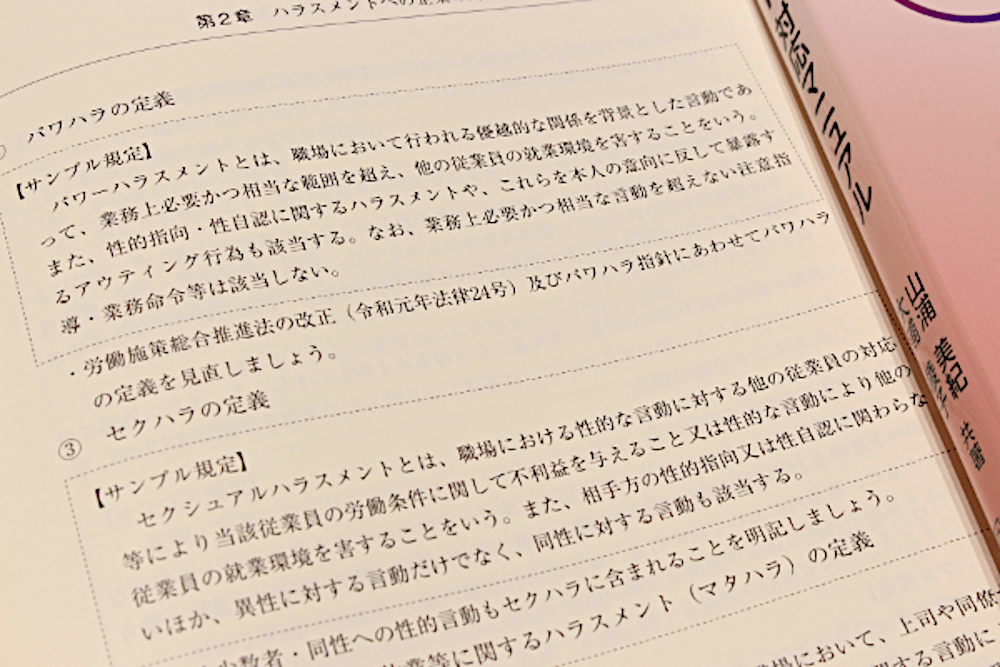 第2章 ハラスメントへの企業
パワハラの定義
【サンプル規定】
パワーハラスメントとは、職場において行われる優越的な関係を背景とした言動であ
って、業務上必要かつ相当な範囲を超え、他の従業員の就業環境を害することをいう。
また、性的指向・性自認に関するハラスメントや、これらを本人の意向に反して暴露す
るアウティング行為も該当する。なお、業務上必要かつ相当な言動を超えない注意指
導・業務命令等は該当しない。
・労働施策総合推進法の改正（令和元年法律24号）及びパワハラ指針にあわせてパワハラ
の定義を見直しましょう。
③ セクハラの定義
【サンプル規定】
セクシュアルハラスメントとは、職場における性的な言動に対する他の従業員の対応
等により当該従業員の労働条件に関して不利益を与えること又は性的な言動により他の
従業員の就業環境を害することをいう。また、相手方の性的指向又は性自認に関わらな
いほか、異性に対する言動だけでなく、同性に対する言動も該当する。
少数者・同性への性的言動もセクハラに含まれることを明記しましょう。
業等に関するハラスメント（マタハラ）の定義
場において、上司や同僚
する言動に
マニュアル
山浦 美紀
大浦 共著